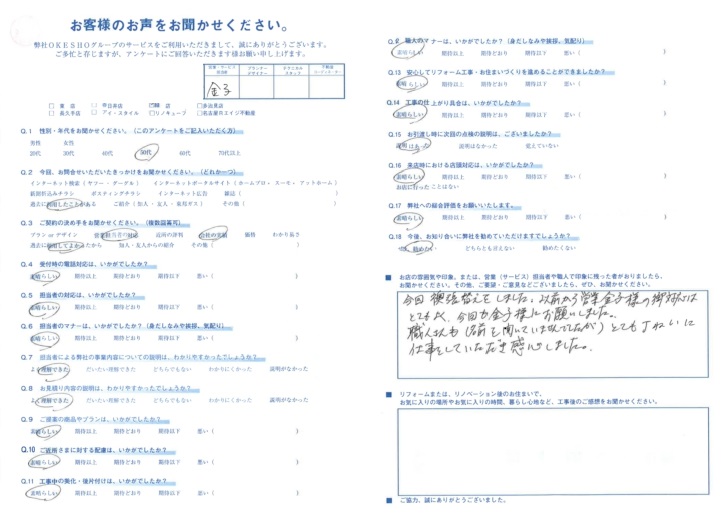 お客様のお声をお聞かせください。
弊社OKESHOグループのサービスをご利用いただきまして、誠にありがとうございます。
ご多忙と存じますが、アンケートにご回答いただけます様お願い申し上げます。
営業・サービス担当者 プランナーデザイナー テクニカルスタッフ 不動産コーディネーター
金子
東店 春日井店 緑店 多治見店
長久手店 アイ・スタイル リノキューブ 名古屋ロエイジ不動産
Q.1 性別・年代をお聞かせください。(このアンケートをご記入いただく方)
男性 女性
20代 30代 40代 50代 60代 70代以上
Q.2 今回、お問合せいただいたきっかけをお聞かせください。(どれか一つ)
インターネット検索(ヤフー・グーグル) インターネットポータルサイト(ホームプロ・スーモ・アットホーム)
新聞折込みチラシ ポスティングチラシ インターネット広告 雑誌(
過去に利用したことがある ご紹介(知人・友人・東邦ガス) その他(
Q.3 ご契約の決め手をお聞かせください。(複数回答可)
プラン or デザイン 営業担当者の対応 近所の評判 会社の実績 価格 わかり易さ
過去に利用してよかったから 知人・友人からの紹介 その他(
Q.4 受付時の電話対応は、いかがでしたか?
素晴らしい 期待以上 期待どおり 期待以下 悪い( )
Q.5 担当者の対応は、いかがでしたか?
素晴らしい 期待以上 期待どおり 期待以下 悪い( )
Q.6 担当者のマナーは、いかがでしたか?(身だしなみや挨拶、気配り)
素晴らしい 期待以上 期待どおり 期待以下 悪い( )
Q.7 担当者による弊社の事業内容についての説明は、わかりやすかったでしょうか?
よく理解できた だいたい理解できた どちらでもない わかりにくかった 説明がなかった
Q.8 お見積り内容の説明は、わかりやすかったでしょうか?
よく理解できた だいたい理解できた どちらでもない わかりにくかった 説明がなかった
Q.9 ご提案の商品やプランは、いかがでしたか?
素晴らしい 期待以上 期待どおり 期待以下 悪い( )
Q.10 ご近所さまに対する配慮は、いかがでしたか?
素晴らしい 期待以上 期待どおり 期待以下 悪い( )
Q.11 工事中の美化・後片付けは、いかがでしたか?
素晴らしい 期待以上 期待どおり 期待以下 悪い( )
職人のマナーは、いかがでしたか?(身だしなみや挨拶、気配り)
素晴らしい 期待以上 期待どおり 期待以下 悪い( )
Q.13 安心してリフォーム工事・お住まいづくりを進めることができましたか?
素晴らしい 期待以上 期待どおり 期待以下 悪い( )
Q.14 工事の仕上がり具合は、いかがでしたか?
素晴らしい 期待以上 期待どおり 期待以下 悪い( )
Q.15 お引渡し時に次回の点検の説明は、ございましたか?
説明はあった 説明はなかった 覚えていない
Q.16 来店時における店頭対応は、いかがでしたか?
素晴らしい 期待以上 期待どおり 期待以下 悪い( )
お店に行ったことはない
Q.17 弊社への総合評価をお願いいたします。
素晴らしい 期待以上 期待どおり 期待以下 悪い( )
Q.18 今後、お知り合いに弊社を勧めていただけますでしょうか?
勧めたい どちらとも言えない 勧めたくない
■ お店の雰囲気や印象。または、営業(サービス)担当者や職人で印象に残った者がおりましたら、
お聞かせください。その他、ご要望・ご意見などございましたら、ぜひ、お聞かせください。
今回 襖張替えをしました。以前から営業金子様の御対応は
とてもよく、今回も金子様にお願いしました。
職人さんも(名前を聞いていませんでしたが)とても丁ねいに
仕事をしていただき感心しました。
■ リフォームまたは、リノベーション後のお住まいで、
お気に入りの場所やお気に入りの時間、暮らし心地など、工事後のご感想をお聞かせください。
■ ご協力、誠にありがとうございました。